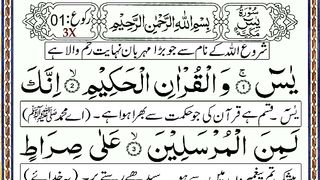 سُورَةُ يٰسٓ مَكِّيَّة بِسْمِ اللّٰهِ الرَّحْمٰنِ الرَّحِيْمِ رکوع:01 3X
شروع اللہ کے نام سے جو بڑا مہربان نہایت رحم والا ہے
يٰسٓ ۚ ۝١ وَالْقُرْاٰنِ الْحَكِيْمِ ۝٢ اِنَّكَ
یٰسٓ قسم ہے قرآن کی جو حکمت سے بھرا ہوا ہے (اے محمد ﷺ)
لَمِنَ الْمُرْسَلِيْنَ ۝٣ عَلٰى صِرَاطٍ